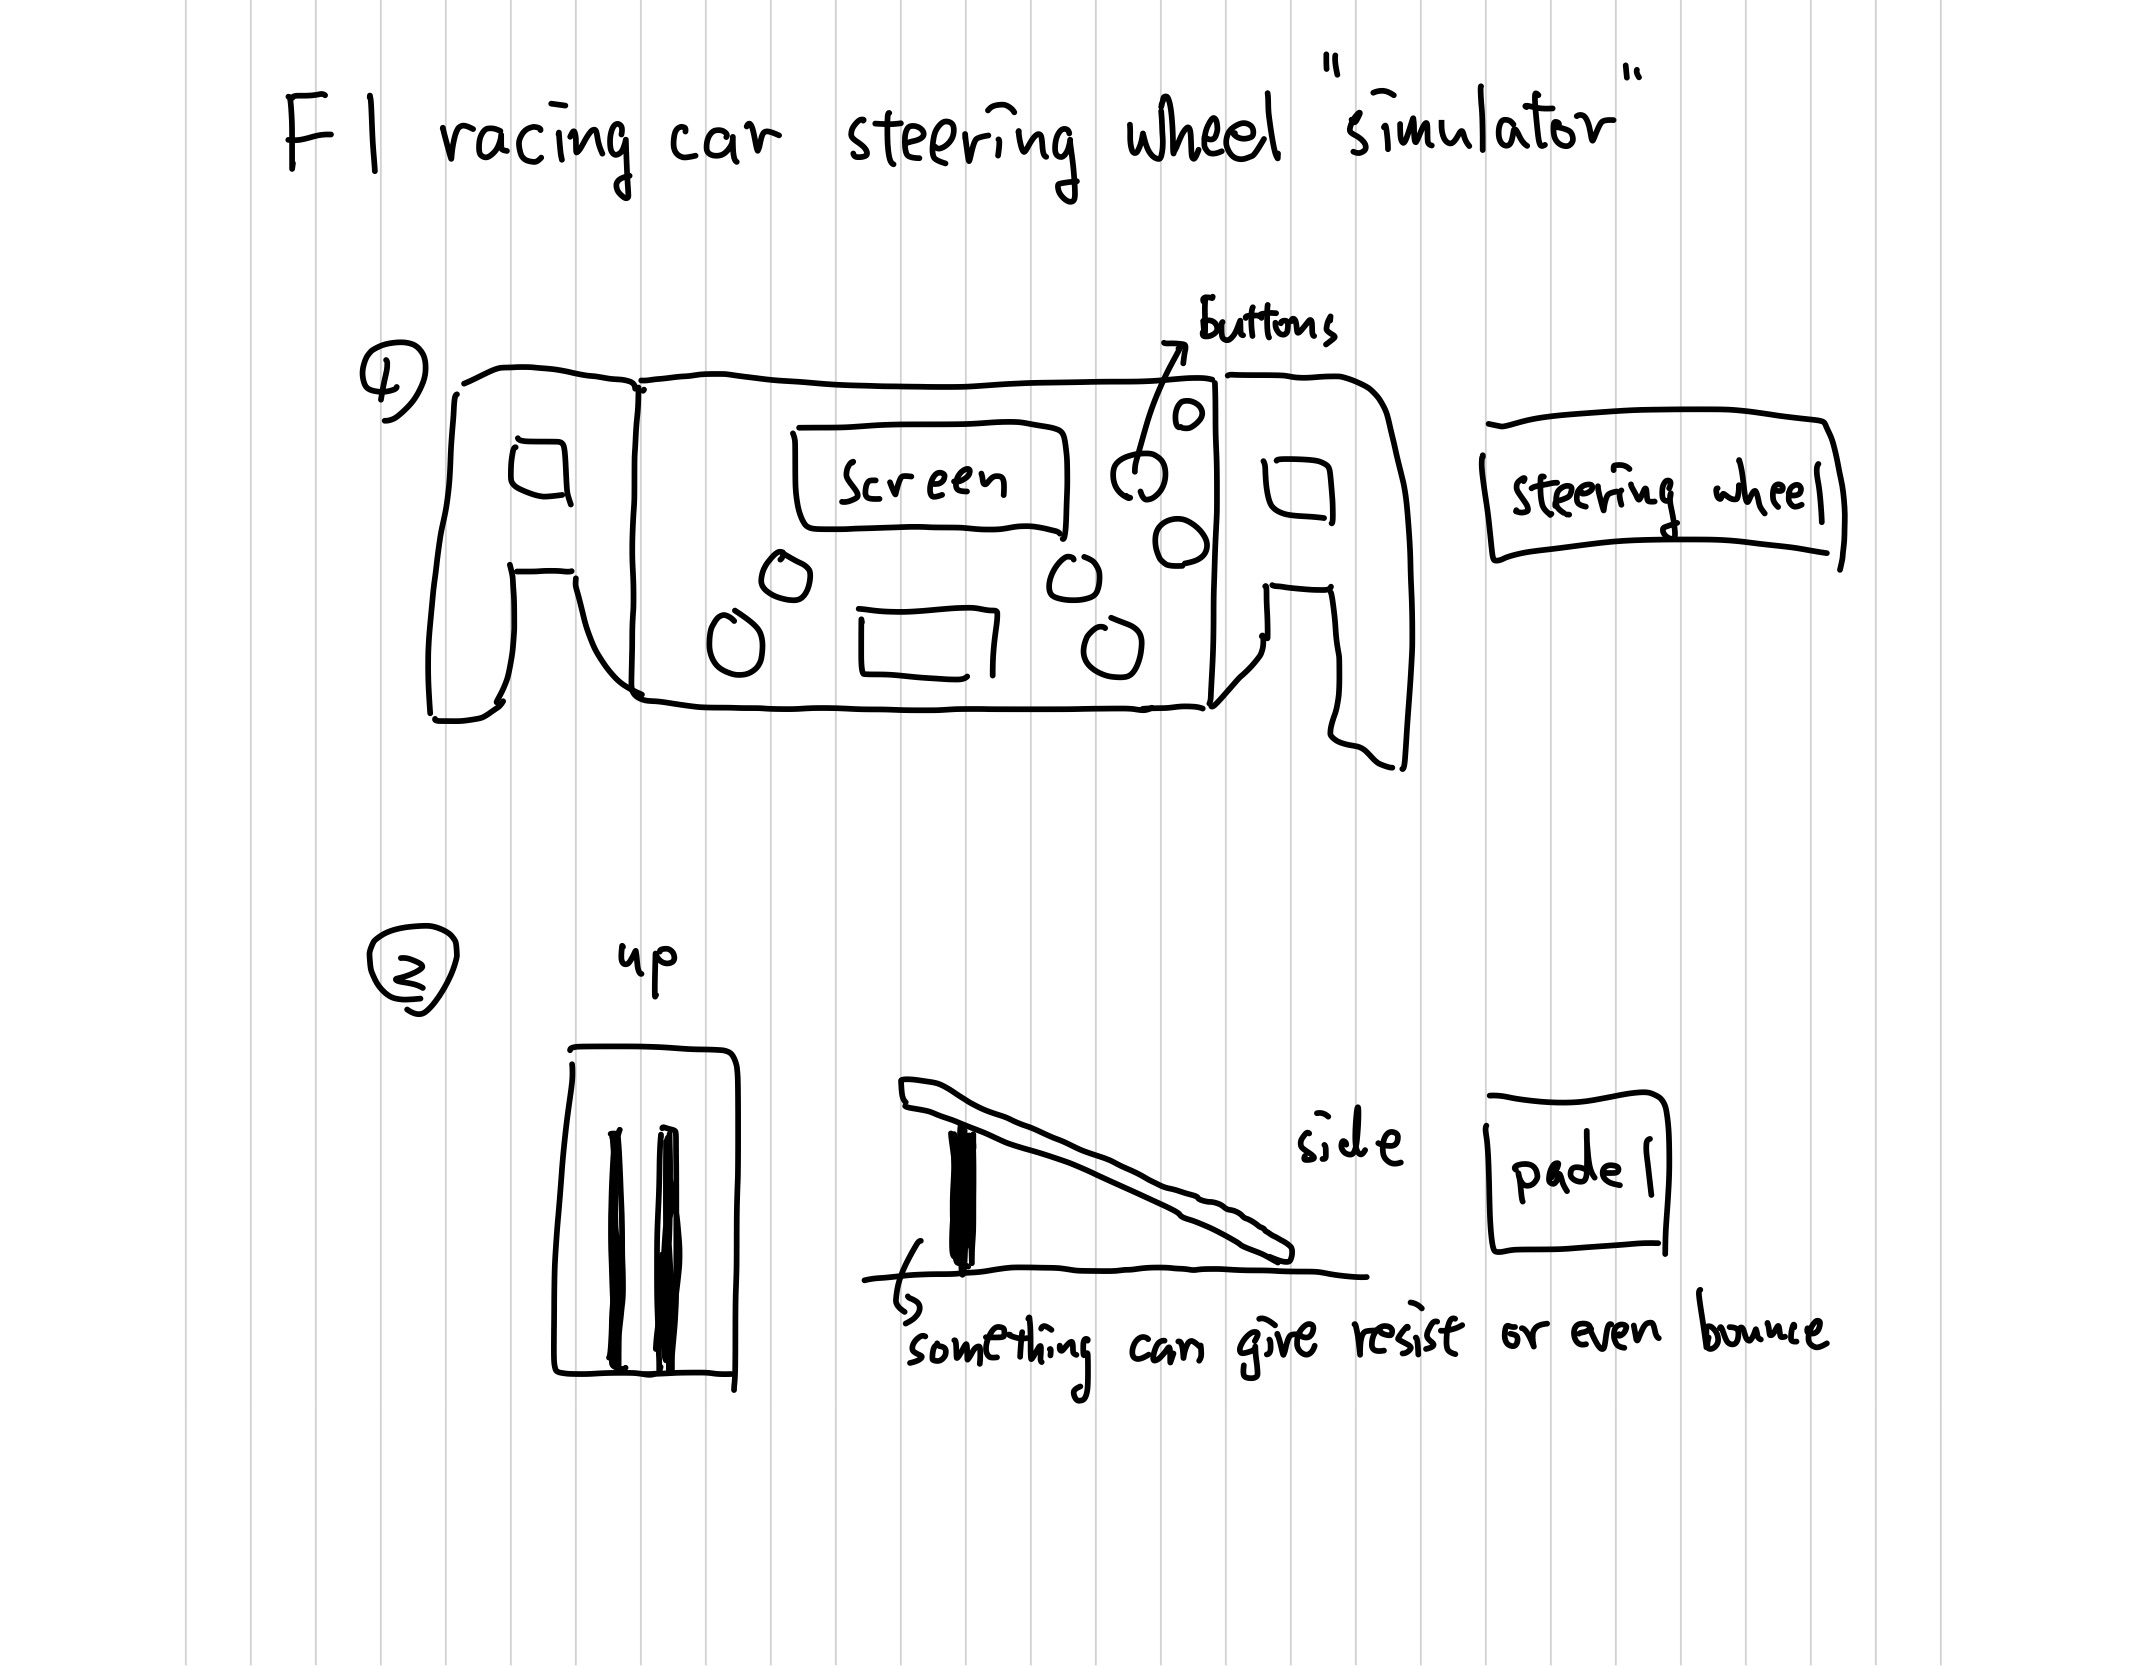 F1 racing car steering wheel "simulator"
1
buttons
screen
steering wheel
2
up
side
padel
something can give resist or even bounce